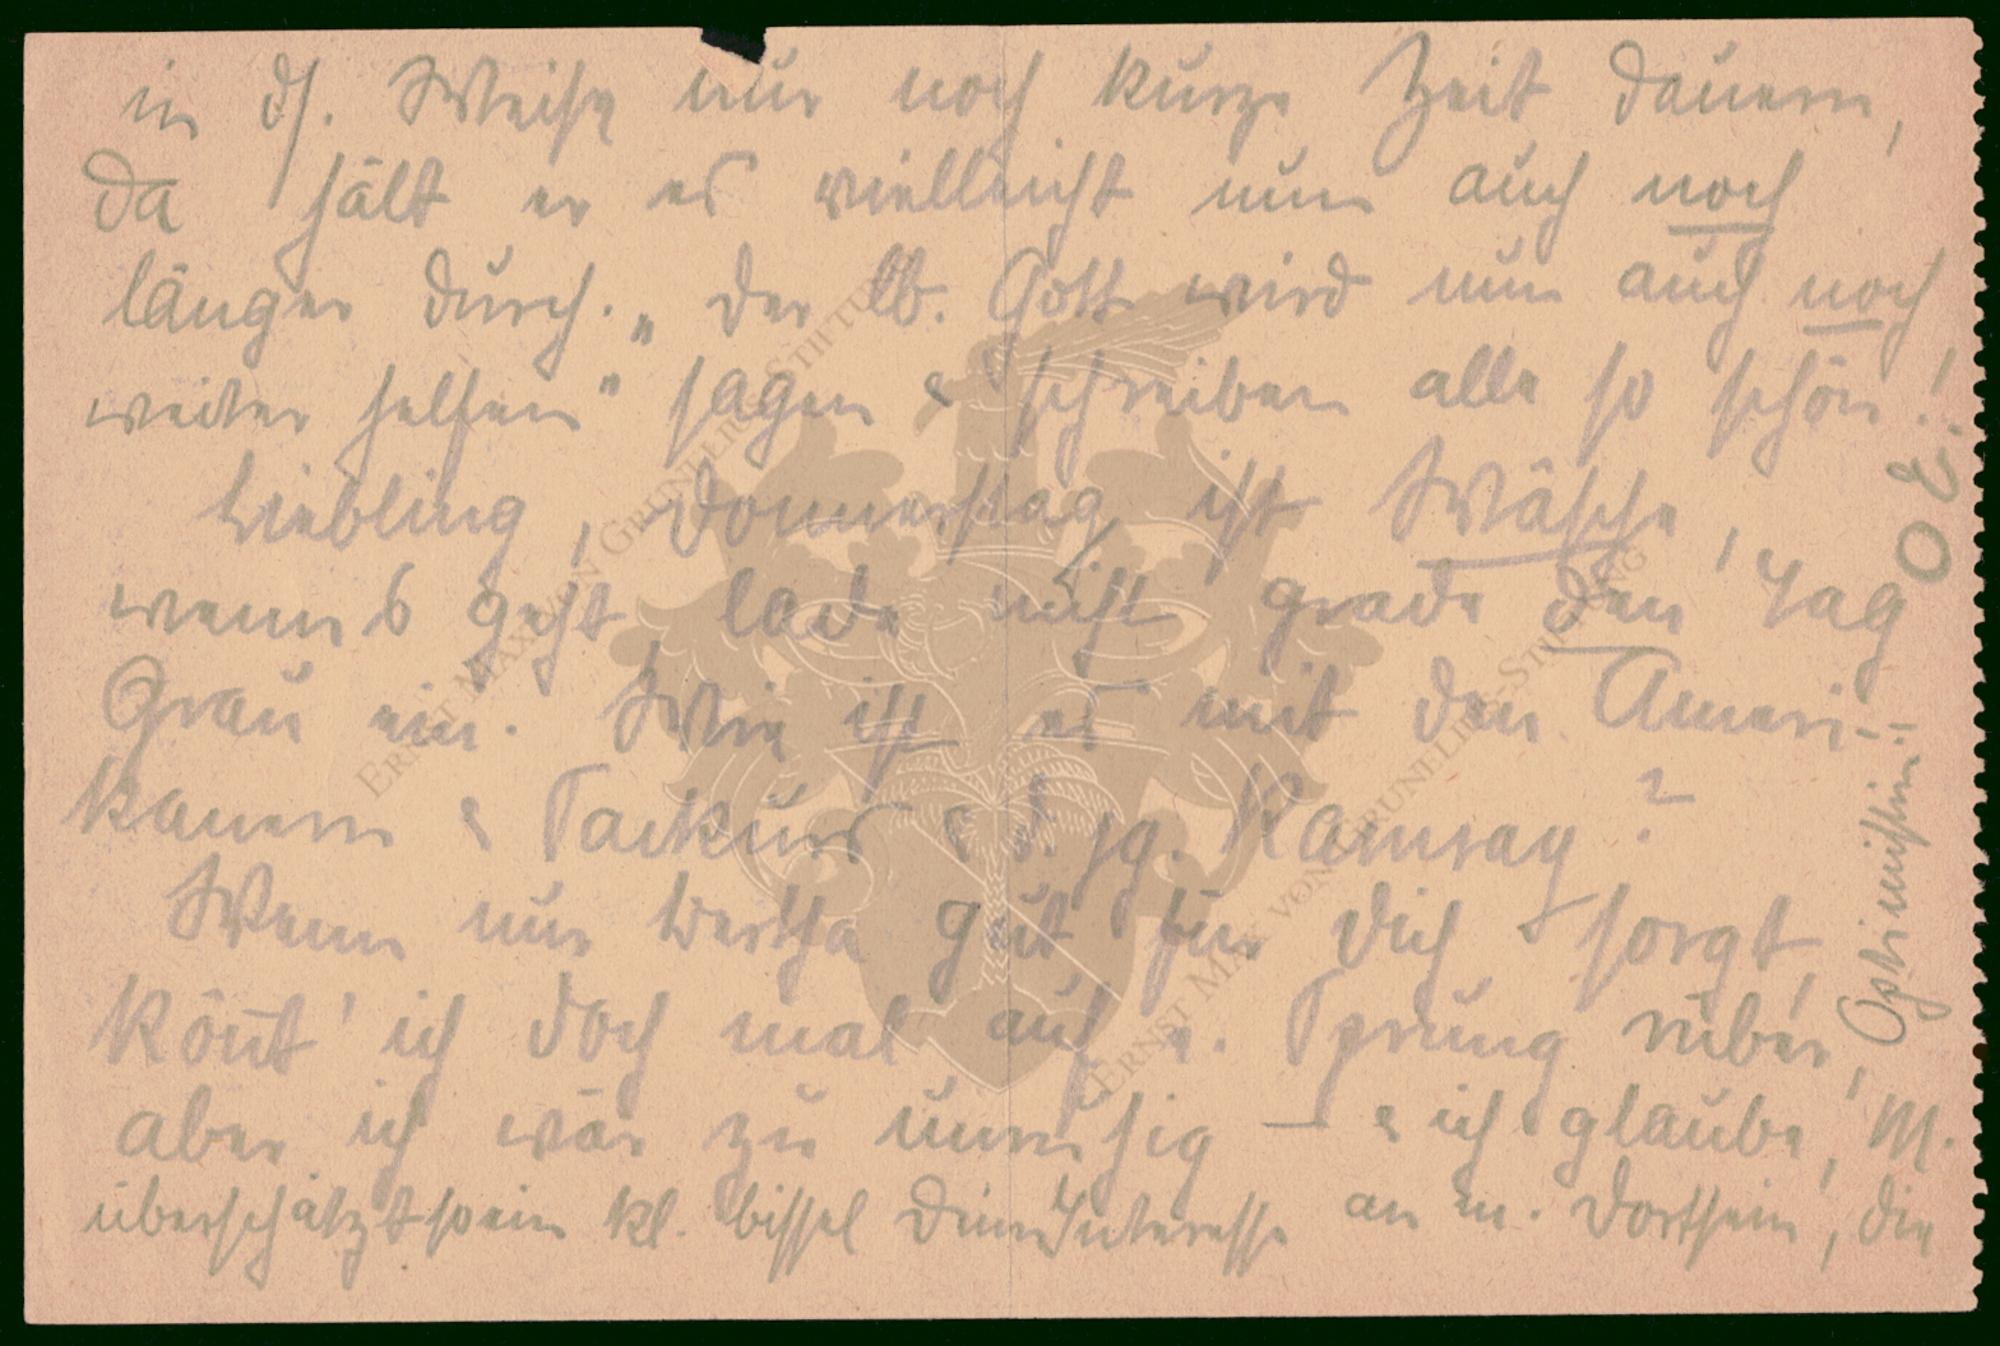 in ds. Weise nur noch kurze Zeit dauern,
da hält er es vielleicht nun auch noch
länger durch. „Der lb. Gott wird nun auch noch
weiter helfen" sagen & schreiben alle so schön!
Liebling, Donnerstag ist Wäsche,
wenns geht, lade nicht grade den Tag
Grau ein. Wie ist es mit den Ameri-
kanern & & d. sg. Ramsay?
Wenn nur Bertha gut für Dich sorgt,
könnt' ich doch mal auf e. Sprung rüber,
aber ich wär zu unruhig — & ich glaube, M.
überschätzt sein kl. bissel Dein Interesse an m. Dortsein, die
Optimistin!
O E!
ERNST MAX VON GRUNELIUS-STIFTUNG
ERNST MAX VON GRUNELIUS-STIFTUNG